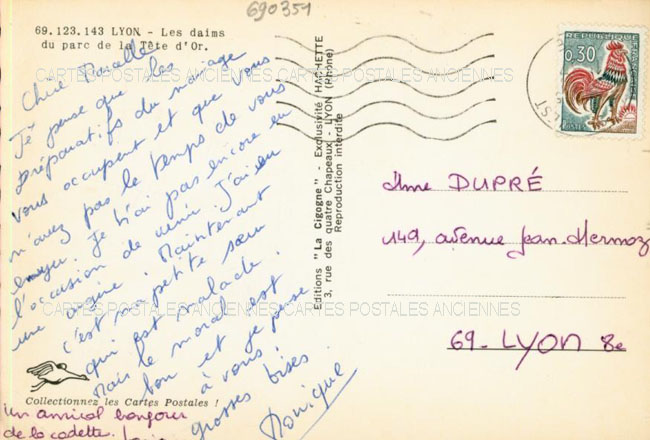 690351
69.123.143 LYON - Les daims
du parc de la Tête d'Or.
Chère
Je pense que les
préparatifs du mariage
vous occupent et que vous
n'avez pas le temps de vous
ennuyer. Je n'ai pas encore eu
l'occasion de venir. J'ai eu
une angine. Maintenant
c'est ma petite sœur
qui est malade.
Mais le moral est
bon et je pense
à vous.
grosses bises
Monique
Collectionnez les Cartes Postales !
un amical bonjour
de la cadette.
Editions "La Cigogne" - Exclusivité HACHETTE
3, rue des quatre Chapeaux - LYON (Rhône)
Reproduction interdite
REPUBLIQUE
FRANÇAISE
0,30
POSTES
Mme DUPRÉ
149, avenue Jean Mermoz
69 - LYON 8e
CARTES POSTALES ANCIENNES CARTES POSTALES ANCIENNES
CARTES POSTALES ANCIENNES CARTES POSTALES ANCIENNES